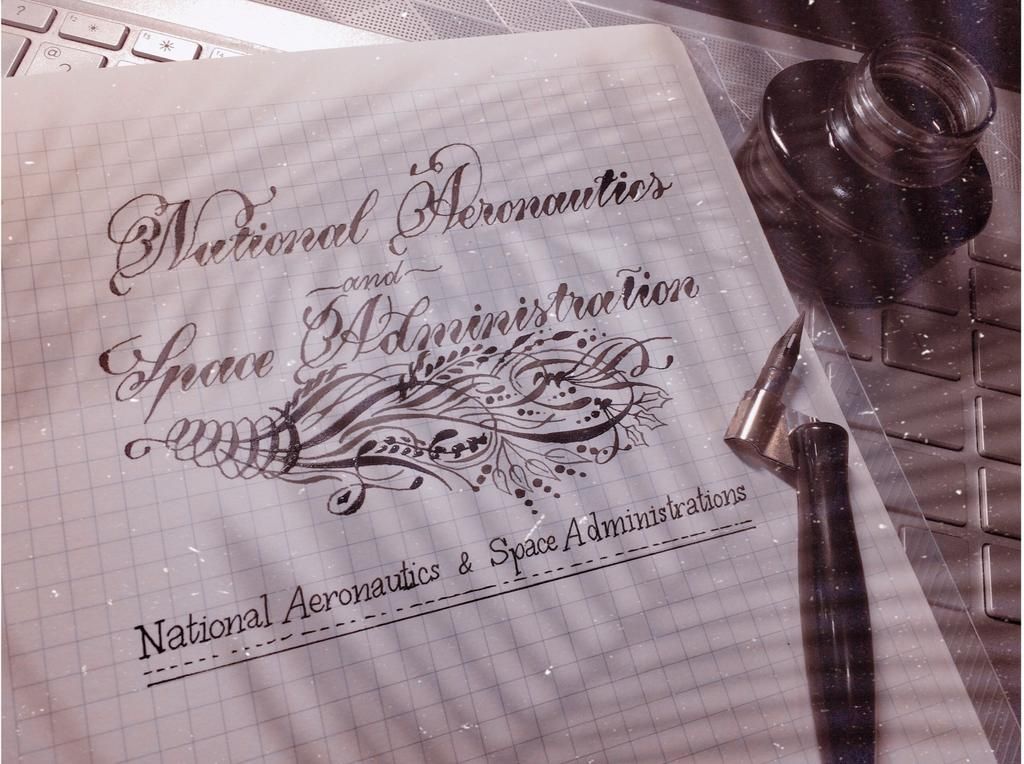 ?
@
2
National Aeronautics
~and~
Space Administration
National Aeronautics & Space Administrations